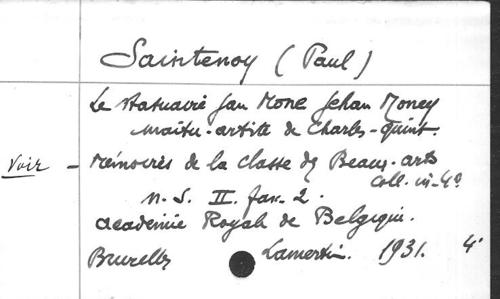 Saintenoy (Paul)
Le statuaire Jan Mone Jehan Money
maitre-artiste de Charles-Quint.
Voir - Mémoires de la classe des Beaux-arts
Coll. in-4º
n. S. II. fasc. 2.
académie Royale de Belgique.
Bruxelles Lamertin. 1931. 4º